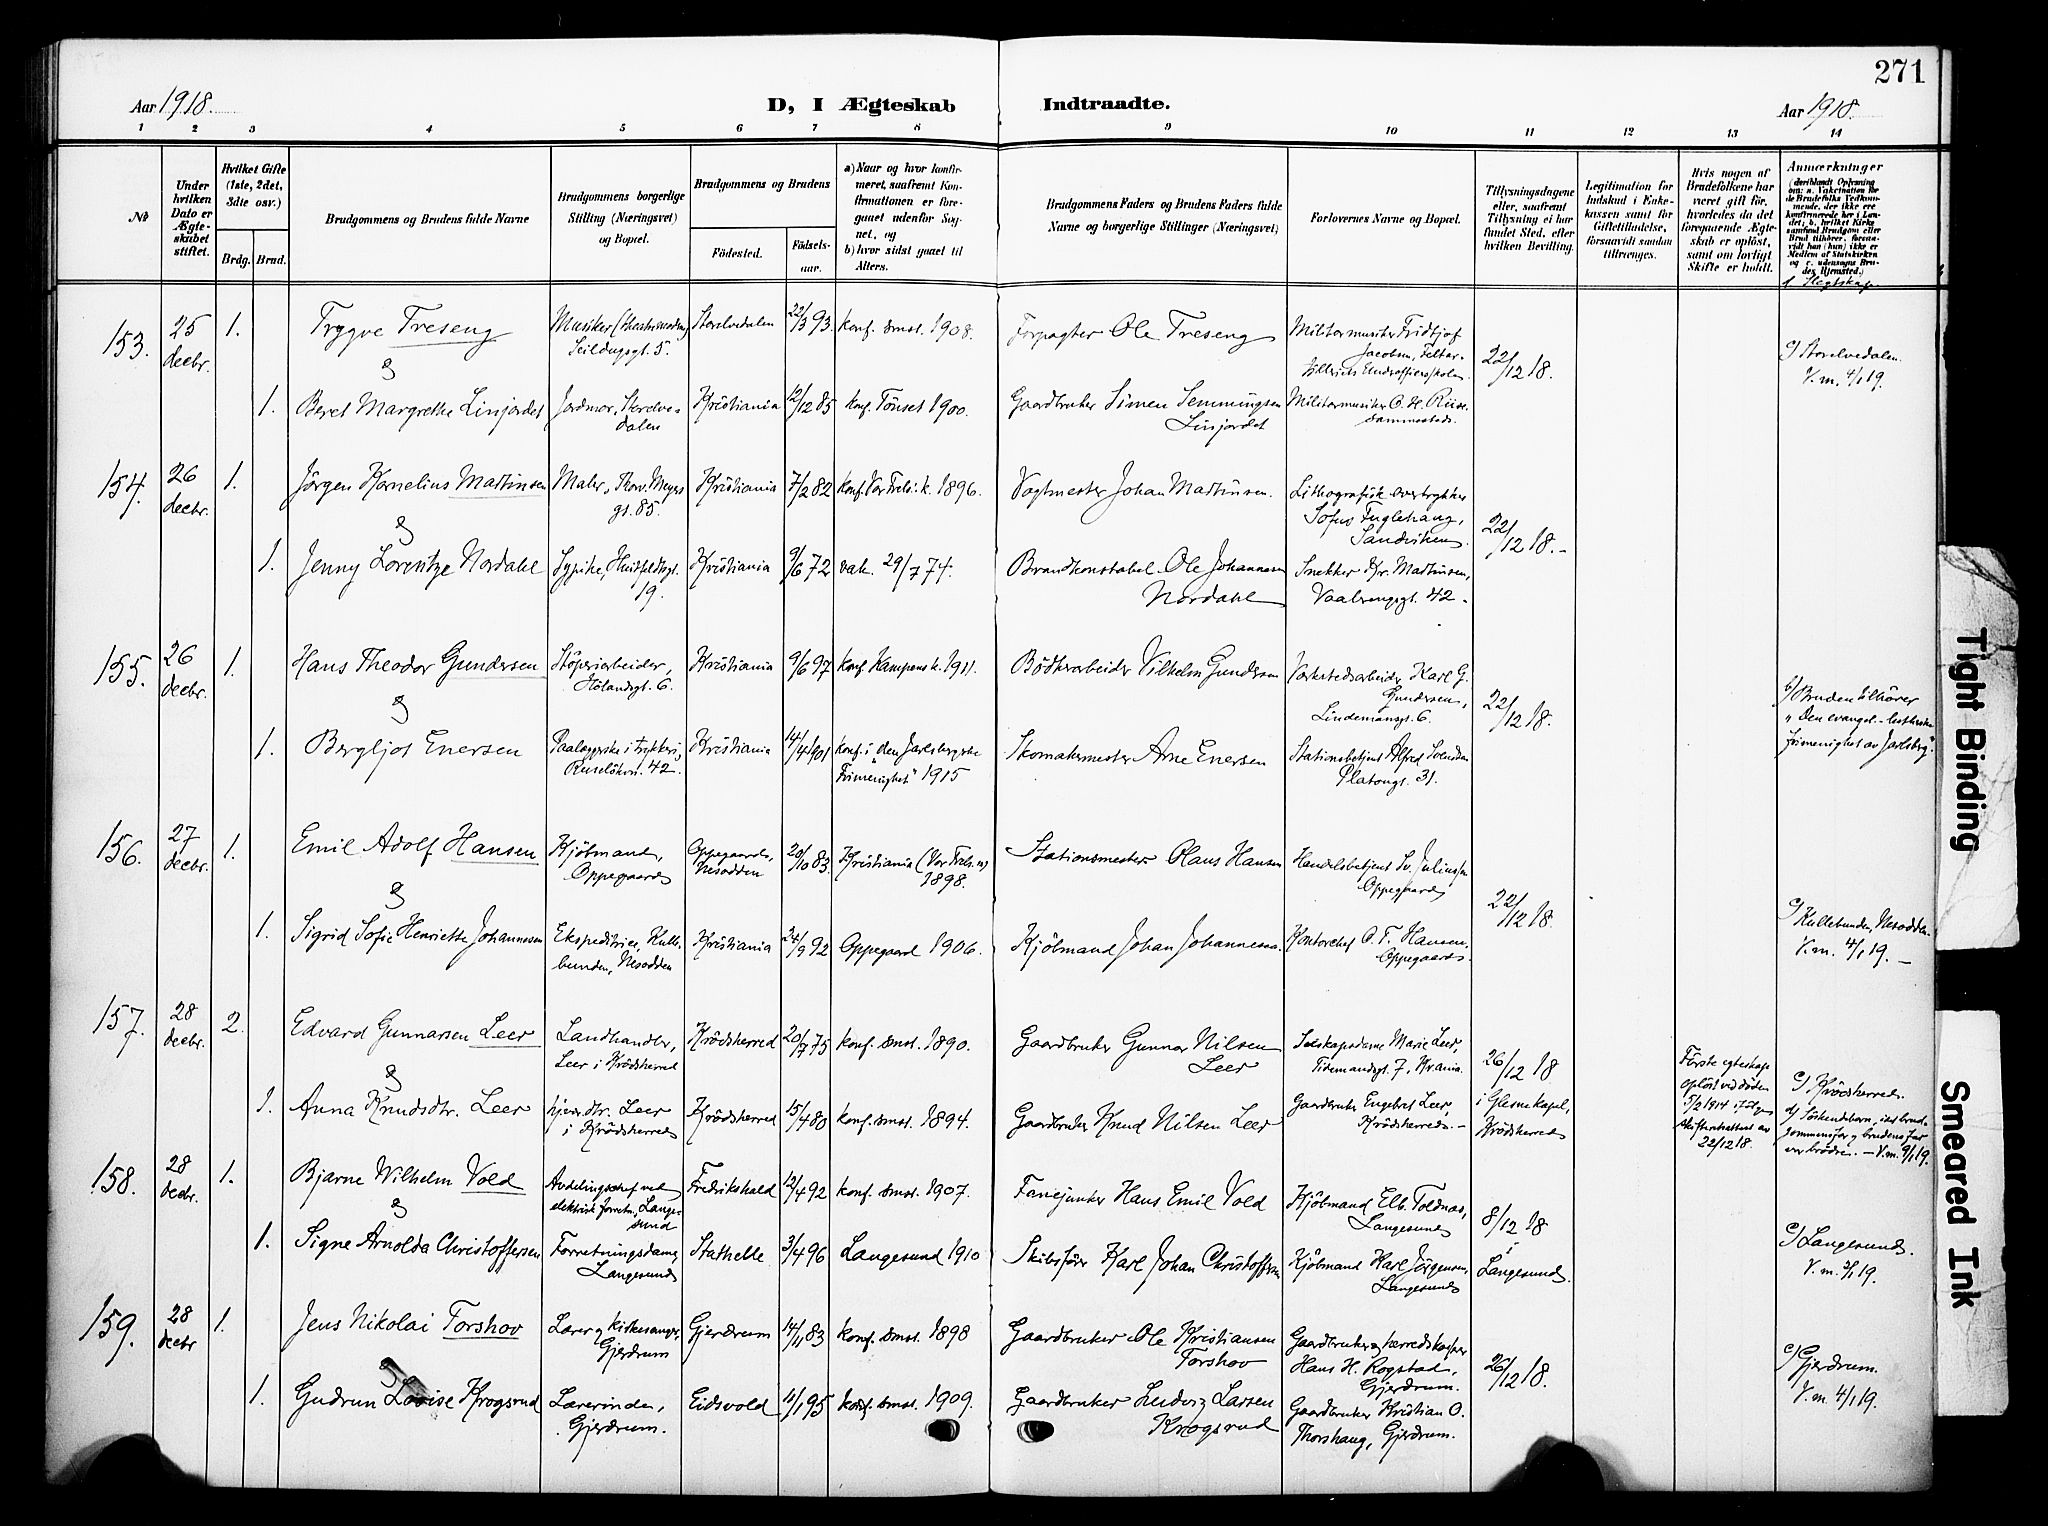 271
Aar 1918.
D, I Ægteskab Indtraadte.
Aar 1918.
1 2 3 4 5 6 7 8 9 10 11 12 13 14
No
Under hvilken Dato er Ægteskabet stiftet.
Hvilket Gifte (1ste, 2det, 3dte osv.)
Brdg. Brud.
Brudgommens og Brudens fulde Navne
Brudgommens borgerlige Stilling (Næringsvei) og Bopæl.
Brudgommens og Brudens
Födested.
Födselsaar.
a) Naar og hvor konfirmeret, saafremt Konfirmationen er foregaaet udenfor Sognet, og
b) hvor sidst gaaet til Alters.
Brudgommens Faders og Brudens Faders fulde Navne og borgerlige Stillinger (Næringsvei)
Forlovernes Navne og Bopæl.
Tillysningsdagene eller, saafremt Tillysning ei har fundet Sted, efter hvilken Bevilling.
Legitimation for Indskud i Enkekassen samt for Giftetilladelse, forsaavidt saadan tiltrænges.
Hvis nogen af Brudefolkene har været gift för, hvorledes da det foregaaende Ægteskab er oplöst, samt om lovligt Skifte er holdt.
Anmærkninger
(deriblandt Oplysning om: a. Vakcination for de Brudefolks Vedkommende, der ikke ere konfirmerede her i Landet; b. hvilket Kirkesamfund Brudgom eller Brud tilhörer, forsaavidt han (hun) ikke er Medlem af Statskirken og c. udensogns Brudes Hjemsted.)
d Slegtskap.
153. 25 decbr. 1. Trygve Treseng
Seildugsgt. 5. Storelvedalen 22/3 93. konf. smst. 1908.
Forpagter Ole Treseng
Militærmusiker Fridtjof Jacobsen,
22/12 18.
c/ Storelvedalen. V.m. 4/1 19.
&
1. Beret Margrethe Linjordet
Jordmor, Storelvedalen Kristiania 12/12 85 konf. Tönset 1900.
Gaardbruker Simen Semmingsen Linjordet
Militærmusiker O. H. Riise sammesteds.
154. 26 decbr. 1. Jörgen Kornelius Martinsen
Maler, Thorv. Meyers gt. 85. Kristiania 7/2 82 konf. Vor Frels: k. 1896.
Vogtmester Johan Martinsen.
Lithografisk overtrykker Sofus Fuglehaug, Sandviken.
22/12 18.
&
1. Jenny Lorentze Nordahl
Sypike, Huitfeldtsgt. 19. Kristiania 9/6 72 vak. 29/7 74.
Brandkonstabel Ole Johannesen Nordahl
Snekker Kr. Martinsen, Vaalerengsgt. 42.
155. 26 decbr. 1. Hans Theodor Gundersen
Stöperiarbeider, Hölandsgt. 6. Kristiania 9/6 97 konf. Kampens k. 1911.
Bödkerarbeider Vilhelm Gundersen
Verkstedsarbeider Karl G. Gundersen, Lindemansgt. 6.
22/12 18.
b/ Bruden tilhörer "Den evangel.-lutherske frimenighet av Jarlsberg".
&
1. Bergljot Enersen
Paalæggerske i trykkeri, Ruselökvn. 42. Kristiania 14/4 1901 konf. i "den Jarlsbergske Frimenighet" 1915
Skomakermester Arne Enersen
Stationsbetjent Alfred Svendsen Platousgt. 31.
156. 27 decbr. 1. Emil Adolf Hansen
Kjöbmand, Oppegaard Oppegaard, Nesodden 20/10 83. Kristiania (Vor Frels: k) 1898.
Stationsmester Olaus Hansen
Handelsbetjent Sv. Juliussen Oppegaard
22/12 18.
c/ Kullebunden, Nesodden. V.m. 4/1 19.
&
1. Sigrid Sofie Henriette Johannesen
Ekspeditrice, Kullebunden, Nesodden Kristiania 24/9 92 Oppegaard 1906.
Kjöbmand Johan Johannessen.
Kontorchef O. T. Hansen. Oppegaard.
157. 28 decbr. 2. Edvard Gunnarsen Leer
Landhandler, Leer i Krödsherred Krödsherred 20/7 75 konf. smst. 1890.
Gaardbruker Gunnar Nilsen Leer
Selskapsdame Marie Leer, Tidemandsgt. 7, Kr.ania.
26/12 18 i Glesnekapel, Krödsherred
Förste egteskap oplöst ved döden 5/2 1914 ifölge skifterettsatt. av 22/12 18.
c/ Krödsherred. d/ Söskendebarn, idet brudgommens far og brudens far var brödre. – V.m. 9/1 19.
&
1. Anna Knudsdtr. Leer
hjem.dtr. Leer i Krödsherred Krödsherred 15/4 80 konf. smst. 1894.
Gaardbruker Knud Nilsen Leer
Gaardbruker Engebret Leer, Krödsherred.
158. 28 decbr. 1. Bjarne Wilhelm Vold
Avdelingschef ved elektrisk forretn., Langesund Fredrikshald 12/4 92 konf. smst. 1907.
Fanejunker Hans Emil Vold
Kjöbmand Elb. Toldnæs, Langesund
8/12 18 i Langesund.
c/ Langesund. V.m. 3/1 19.
&
1. Signe Arnolda Christoffersen
Forretningsdame, Langesund Stathelle 3/4 96 Langesund 1910
Skibsförer Karl Johan Christoffersen
Kjöbmand Karl Jörgensen, Langesund
159. 28 decbr 1. Jens Nikolai Torshov
Lærer og kirkesanger, Gjerdrum Gjerdrum 14/11 83 konf. smst. 1898
Gaardbruker Ole Kristiansen Torshov
Gaardbruker og herredskasserer Hans H. Rogstad, Gjerdrum.
26/12 18.
c/ Gjerdrum. V.m. 4/1 19.
&
1. Gudrun Lovise Krogsrud
Lærerinde, Gjerdrum. Eidsvold 11/1 95 konf. smst. 1909.
Gaardbruker Ludvig Larsen Krogsrud
Gaardbruker Kristian O. Thorshaug, Gjerdrum.
Tight Binding
Smeared Ink